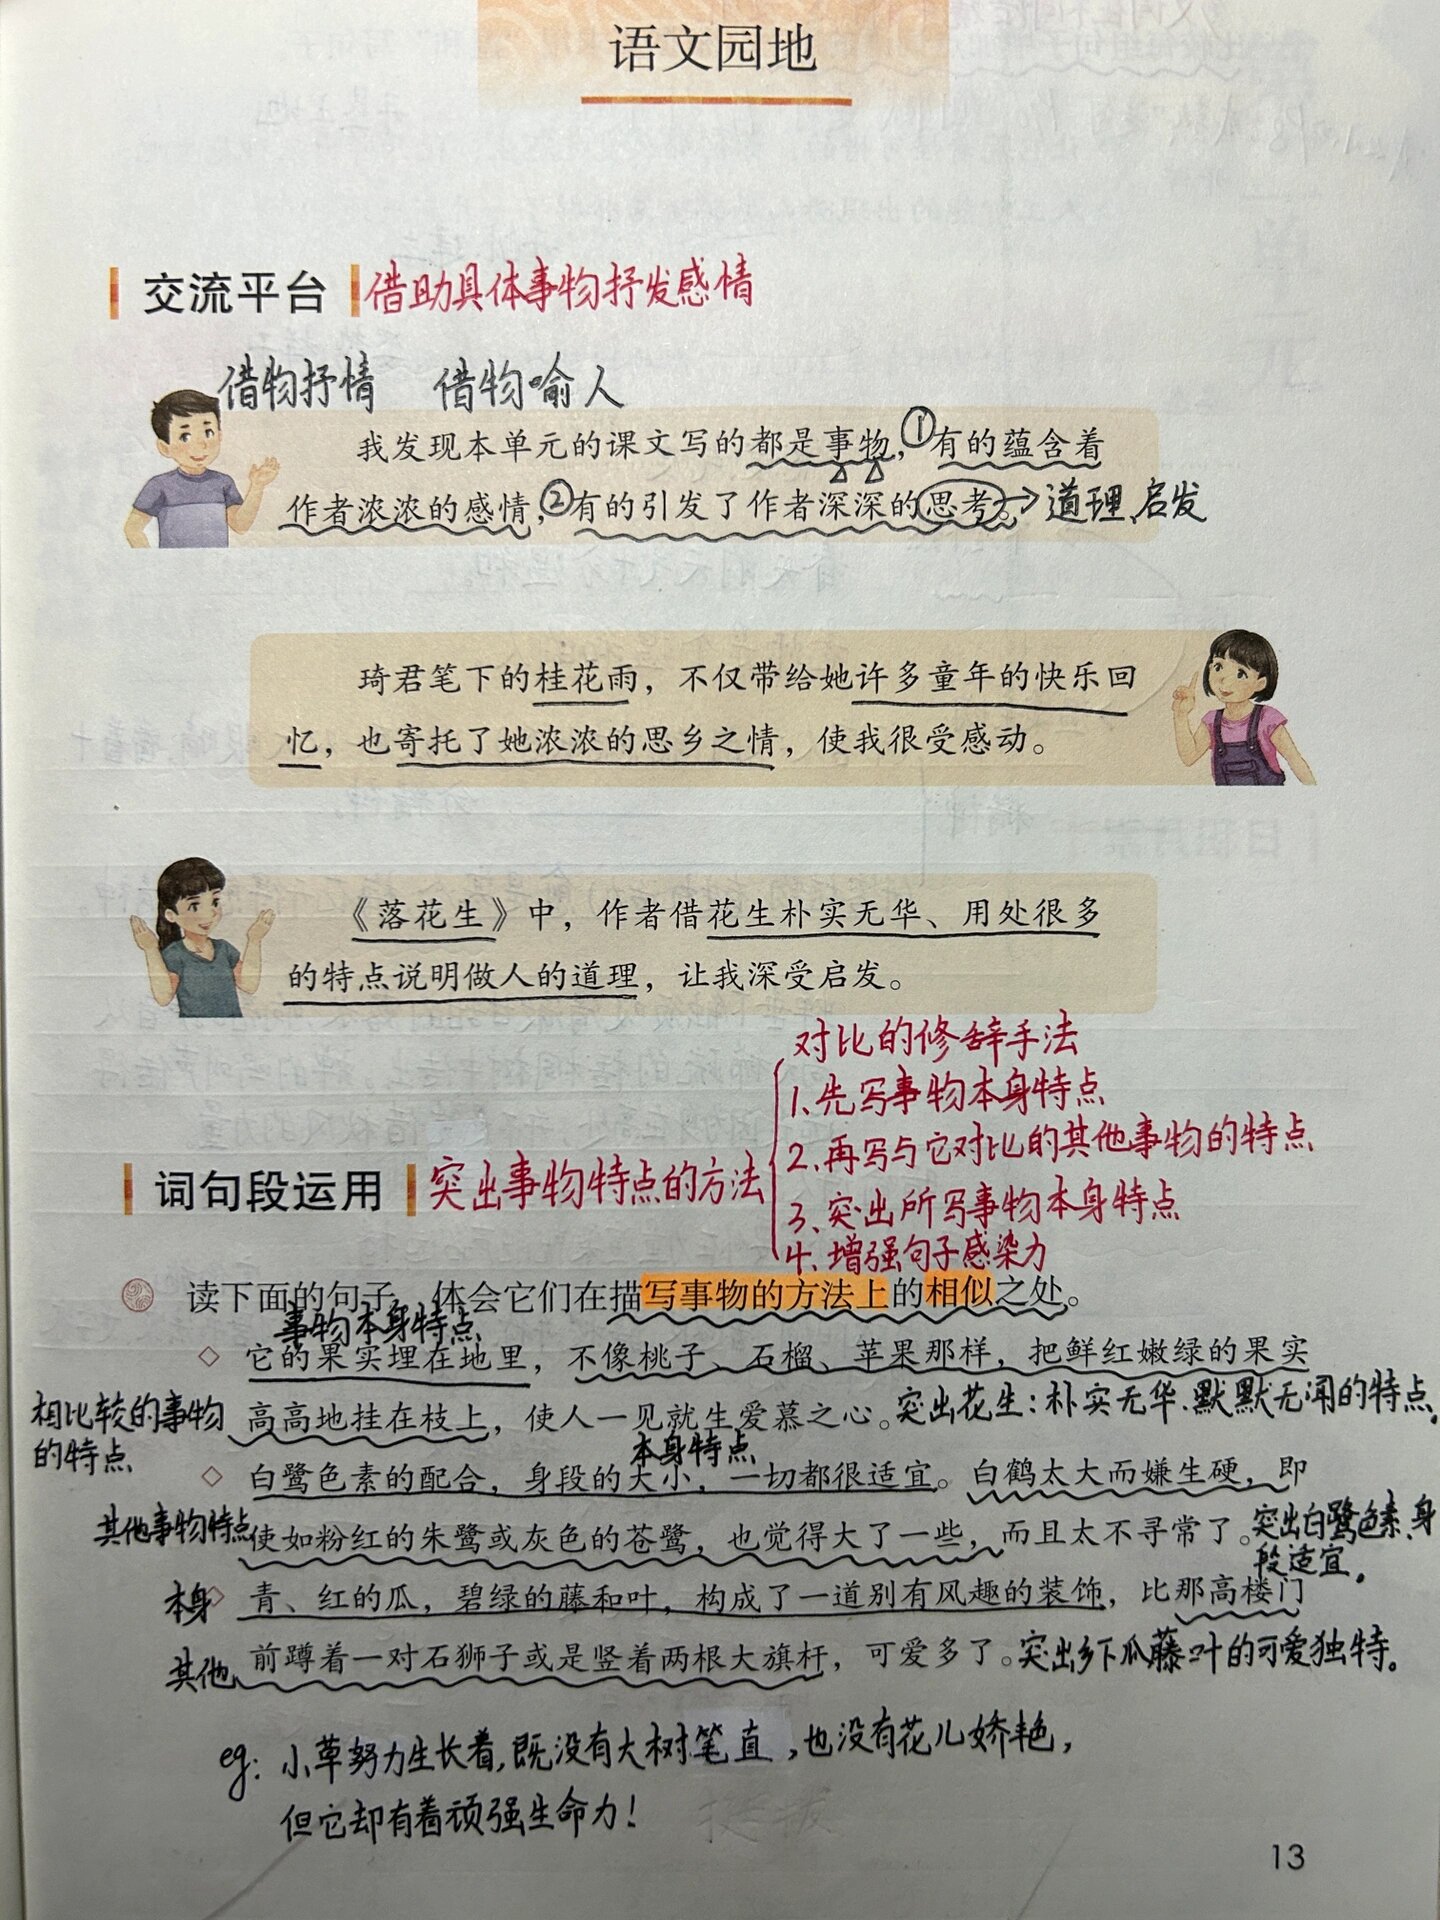 语文园地
交流平台 借助具体事物抒发感情
借物抒情 借物喻人
我发现本单元的课文写的都是事物,①有的蕴含着
作者浓浓的感情,②有的引发了作者深深的思考。→道理、启发
琦君笔下的桂花雨，不仅带给她许多童年的快乐回
忆，也寄托了她浓浓的思乡之情，使我很受感动。
《落花生》中，作者借花生朴实无华、用处很多
的特点说明做人的道理，让我深受启发。
对比的修辞手法
1、先写事物本身特点
2、再写与它对比的其他事物的特点
词句段运用 突出事物特点的方法
3、突出所写事物本身特点
4、增强句子感染力
读下面的句子，体会它们在描写事物的方法上的相似之处。
事物本身特点
◇ 它的果实埋在地里，不像桃子、石榴、苹果那样，把鲜红嫩绿的果实
相比较的事物的特点
高高地挂在枝上，使人一见就生爱慕之心。突出花生：朴实无华、默默无闻的特点。
本身特点
◇ 白鹭色素的配合，身段的大小，一切都很适宜。白鹤太大而嫌生硬，即
其他事物特点 使如粉红的朱鹭或灰色的苍鹭，也觉得大了一些，而且太不寻常了。突出白鹭色素、身
段适宜。
本身 ◇ 青、红的瓜，碧绿的藤和叶，构成了一道别有风趣的装饰，比那高楼门
其他 前蹲着一对石狮子或是竖着两根大旗杆，可爱多了。突出乡下瓜藤叶的可爱独特。
eg: 小草努力生长着,既没有大树笔直,也没有花儿娇艳,
但它却有着顽强生命力!
13